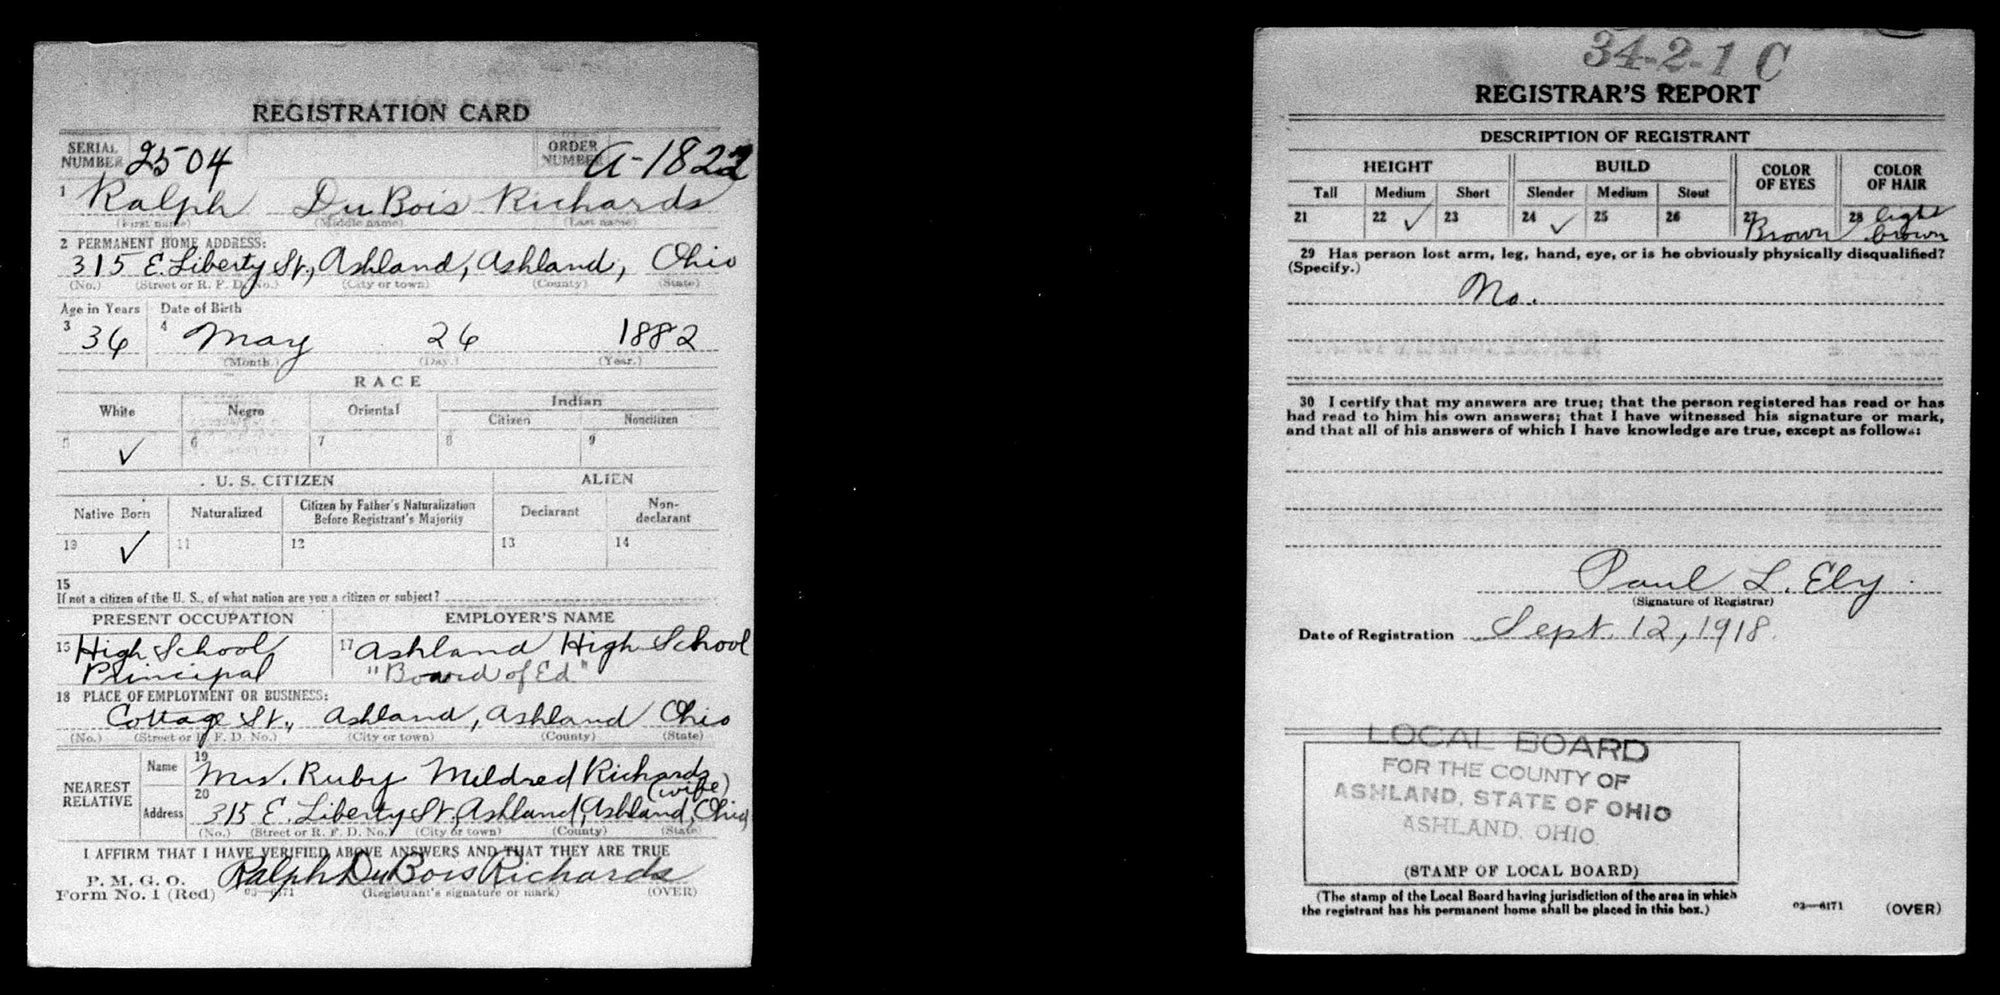 REGISTRATION CARD
SERIAL NUMBER 2504 ORDER NUMBER A-1822
1 Ralph DuBois Richards
(First name) (Middle name) (Last name)
2 PERMANENT HOME ADDRESS:
315 E. Liberty St., Ashland, Ashland, Ohio
(No.) (Street or R. F. D. No.) (City or town) (County) (State)
Age in Years Date of Birth
3 36 4 May 26 1882
(Month.) (Day.) (Year.)
RACE
White Negro Oriental Indian
Citizen Noncitizen
5 ✓ 6 7 8 9
U. S. CITIZEN ALIEN
Native Born Naturalized Citizen by Father's Naturalization Before Registrant's Majority Declarant Non-declarant
10 ✓ 11 12 13 14
15
If not a citizen of the U. S., of what nation are you a citizen or subject?
PRESENT OCCUPATION EMPLOYER'S NAME
16 High School 17 Ashland High School
Principal "Board of Ed"
18 PLACE OF EMPLOYMENT OR BUSINESS:
Cottage St., Ashland, Ashland Ohio
(No.) (Street or R. F. D. No.) (City or town) (County) (State)
NEAREST RELATIVE Name 19 Mrs. Ruby Mildred Richards
(wife)
Address 20 315 E. Liberty St, Ashland, Ashland, Ohio
(No.) (Street or R. F. D. No.) (City or town) (County) (State)
I AFFIRM THAT I HAVE VERIFIED ABOVE ANSWERS AND THAT THEY ARE TRUE
P. M. G. O.
Form No. 1 (Red) 03—6171 Ralph DuBois Richards
(Registrant's signature or mark) (OVER)
34-2-1 C
REGISTRAR'S REPORT
DESCRIPTION OF REGISTRANT
HEIGHT BUILD COLOR OF EYES COLOR OF HAIR
Tall Medium Short Slender Medium Stout
21 22 ✓ 23 24 ✓ 25 26 27 Brown 28 light brown
29 Has person lost arm, leg, hand, eye, or is he obviously physically disqualified?
(Specify.)
No.
30 I certify that my answers are true; that the person registered has read or has
had read to him his own answers; that I have witnessed his signature or mark,
and that all of his answers of which I have knowledge are true, except as follows:
Paul L. Ely.
(Signature of Registrar)
Date of Registration Sept. 12, 1918.
LOCAL BOARD
FOR THE COUNTY OF
ASHLAND, STATE OF OHIO
ASHLAND, OHIO.
(STAMP OF LOCAL BOARD)
(The stamp of the Local Board having jurisdiction of the area in which
the registrant has his permanent home shall be placed in this box.)
03—6171 (OVER)